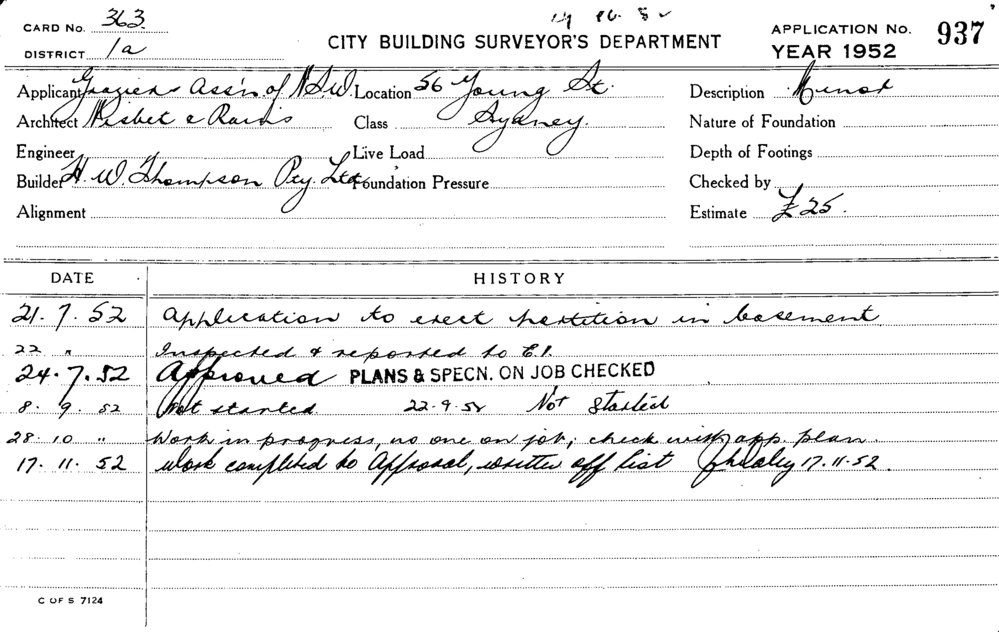 CARD No. 363.
DISTRICT 1a
CITY BUILDING SURVEYOR'S DEPARTMENT
APPLICATION No. 937
YEAR 1952
Applicant Graziers Ass'n of N.S.W. Location 56 Young St. Description Minor
Architect Class Sydney. Nature of Foundation
Engineer Live Load Depth of Footings
Builder H. W. Thompson Pty. Ltd. Foundation Pressure Checked by
Alignment Estimate £25.
DATE HISTORY
21.7.52 Application to erect partition in basement
22 " Inspected & reported to E.I.
24.7.52 Approved PLANS & SPECN. ON JOB CHECKED
8.9.52 Not started 22.9.52 Not Started
28.10 " Work in progress, no one on job; check with app. plan.
17.11.52 Work completed to Approval, written off list 17.11.52.
C OF S 7124